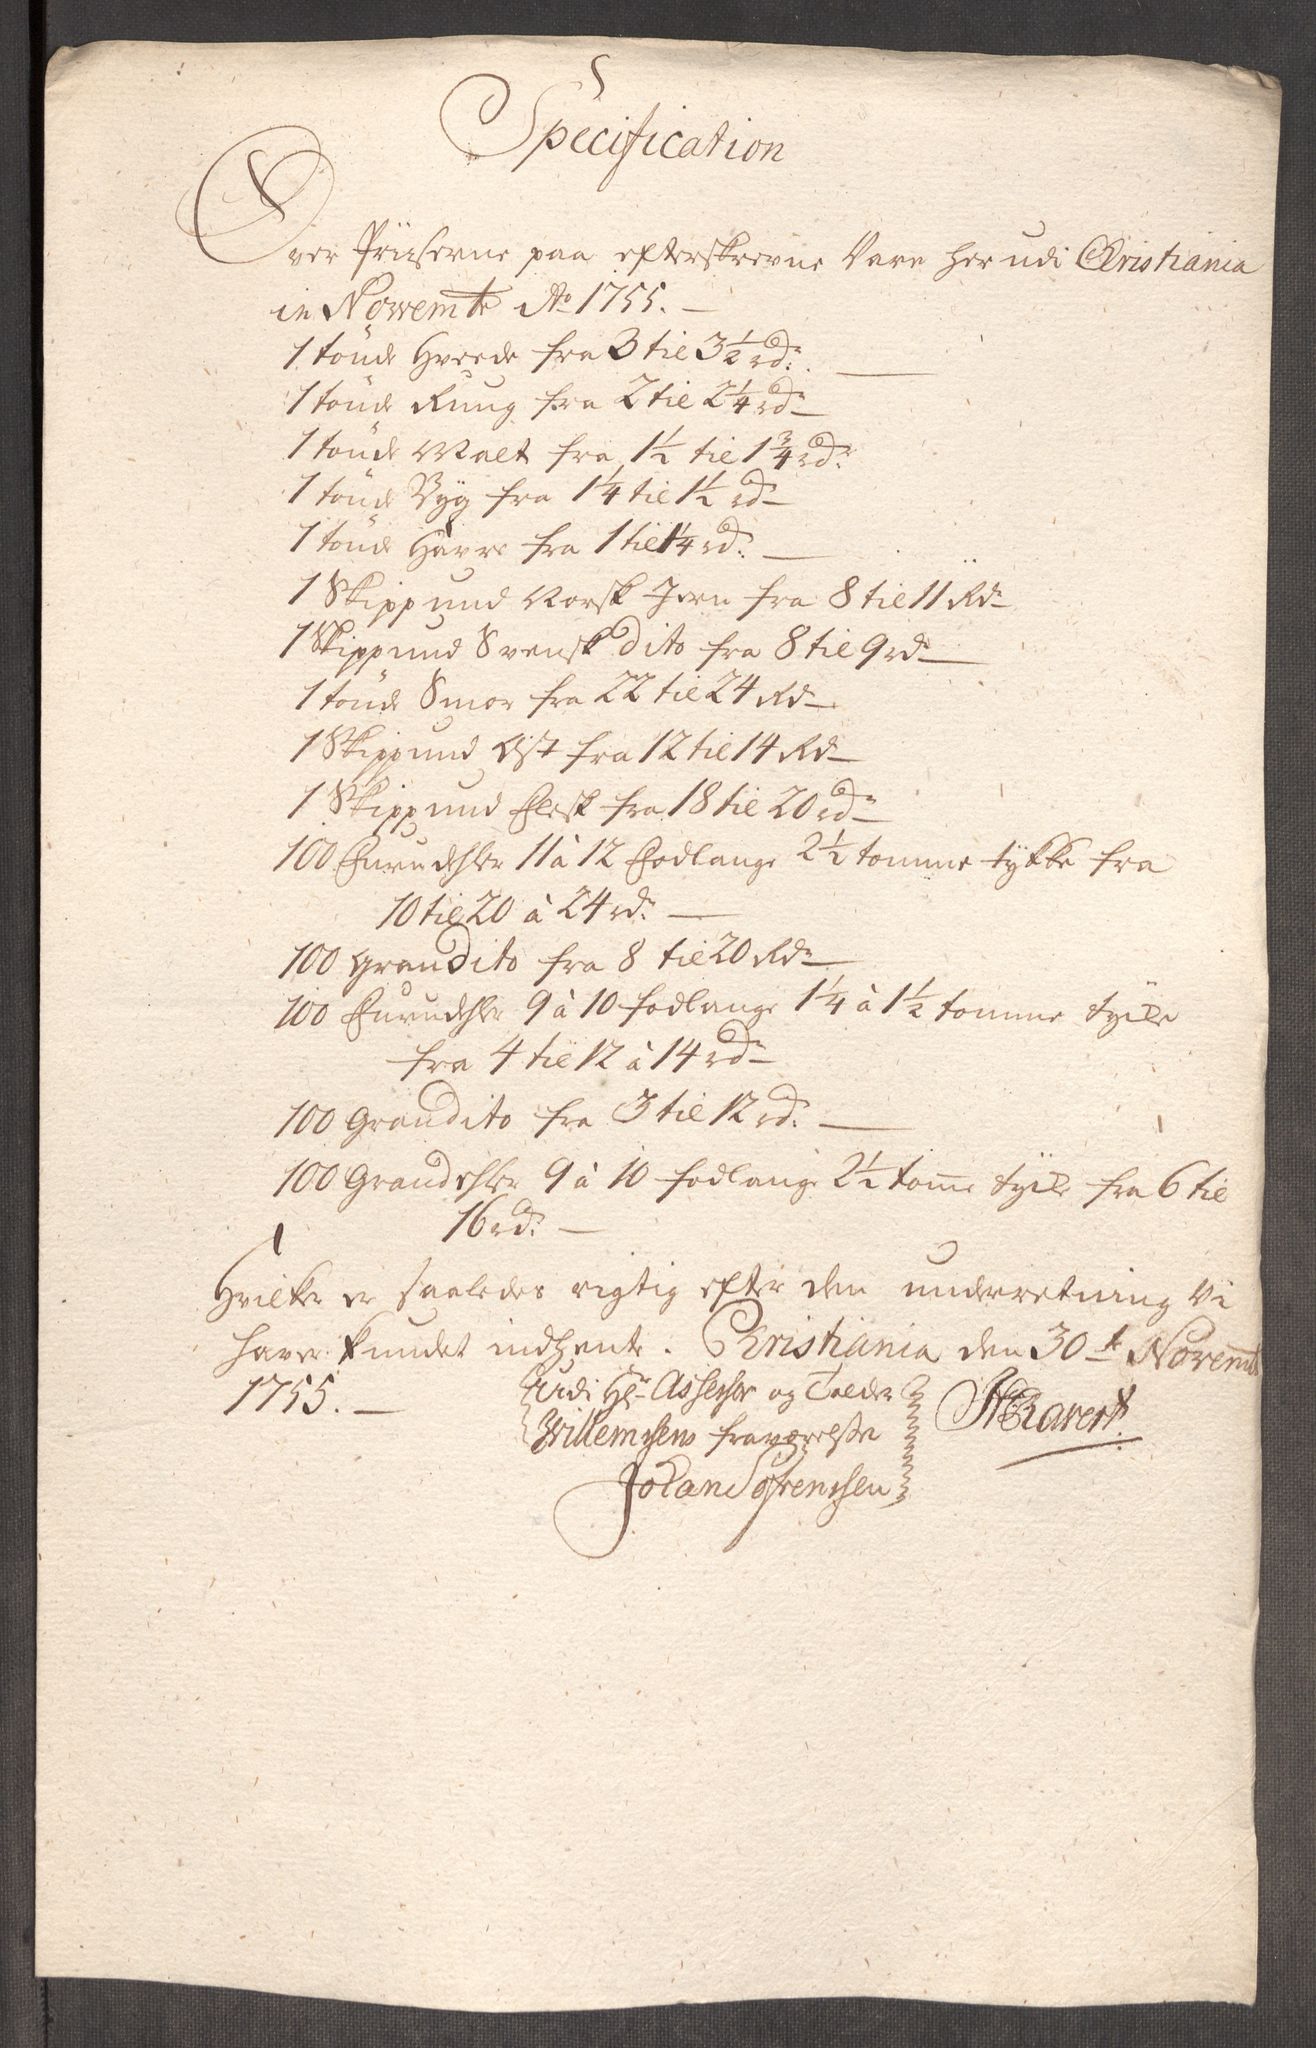 Specification
Over Priiserne paa efterskrevne Vare her udi Christiania
in Novembr Ao 1755. —
1 tønde Hvede fra 3 til 3½ rdr. —
1 tønde Rung fra 2 til 2¼ rdr —
1 tønde Malt fra 1½ til 1¾ rdr.
1 tønde Byg fra 1¼ til 1½ rdr —
1 tønde Havre fra 1 til 1¼ rdr. —
1 Skippund Norsk Jern fra 8 til 11 Rdr
1 Skippund Svensk dito fra 8 til 9 rdr —
1 tønde Smør fra 22 til 24 Rdr —
1 Skippund Ost fra 12 til 14 Rdr —
1 Skippund Flesk fra 18 til 20 rdr —
100 Furudehler 11 à 12 Fodlange 2½ tomme tykke fra
10 til 20 à 24 rdr. —
100 Grandito fra 8 til 20 Rdr —
100 Furudehler 9 à 10 fodlange 1¼ à 1½ tomme tykke
fra 4 til 12 à 14 rdr —
100 Grandito fra 3 til 12 rdr. —
100 Grandehler 9 à 10 fodlange 2½ tomme tykke fra 6 til
16 rdr. —
Hvilket er saaledes rigtig efter den underretning vi
haver kundet indhente. Christiania den 30te Novembr
1755. —
Udi Hr Assessor og Tolder
Willemsens fraværelse
Johan Sørenssen
Ravert